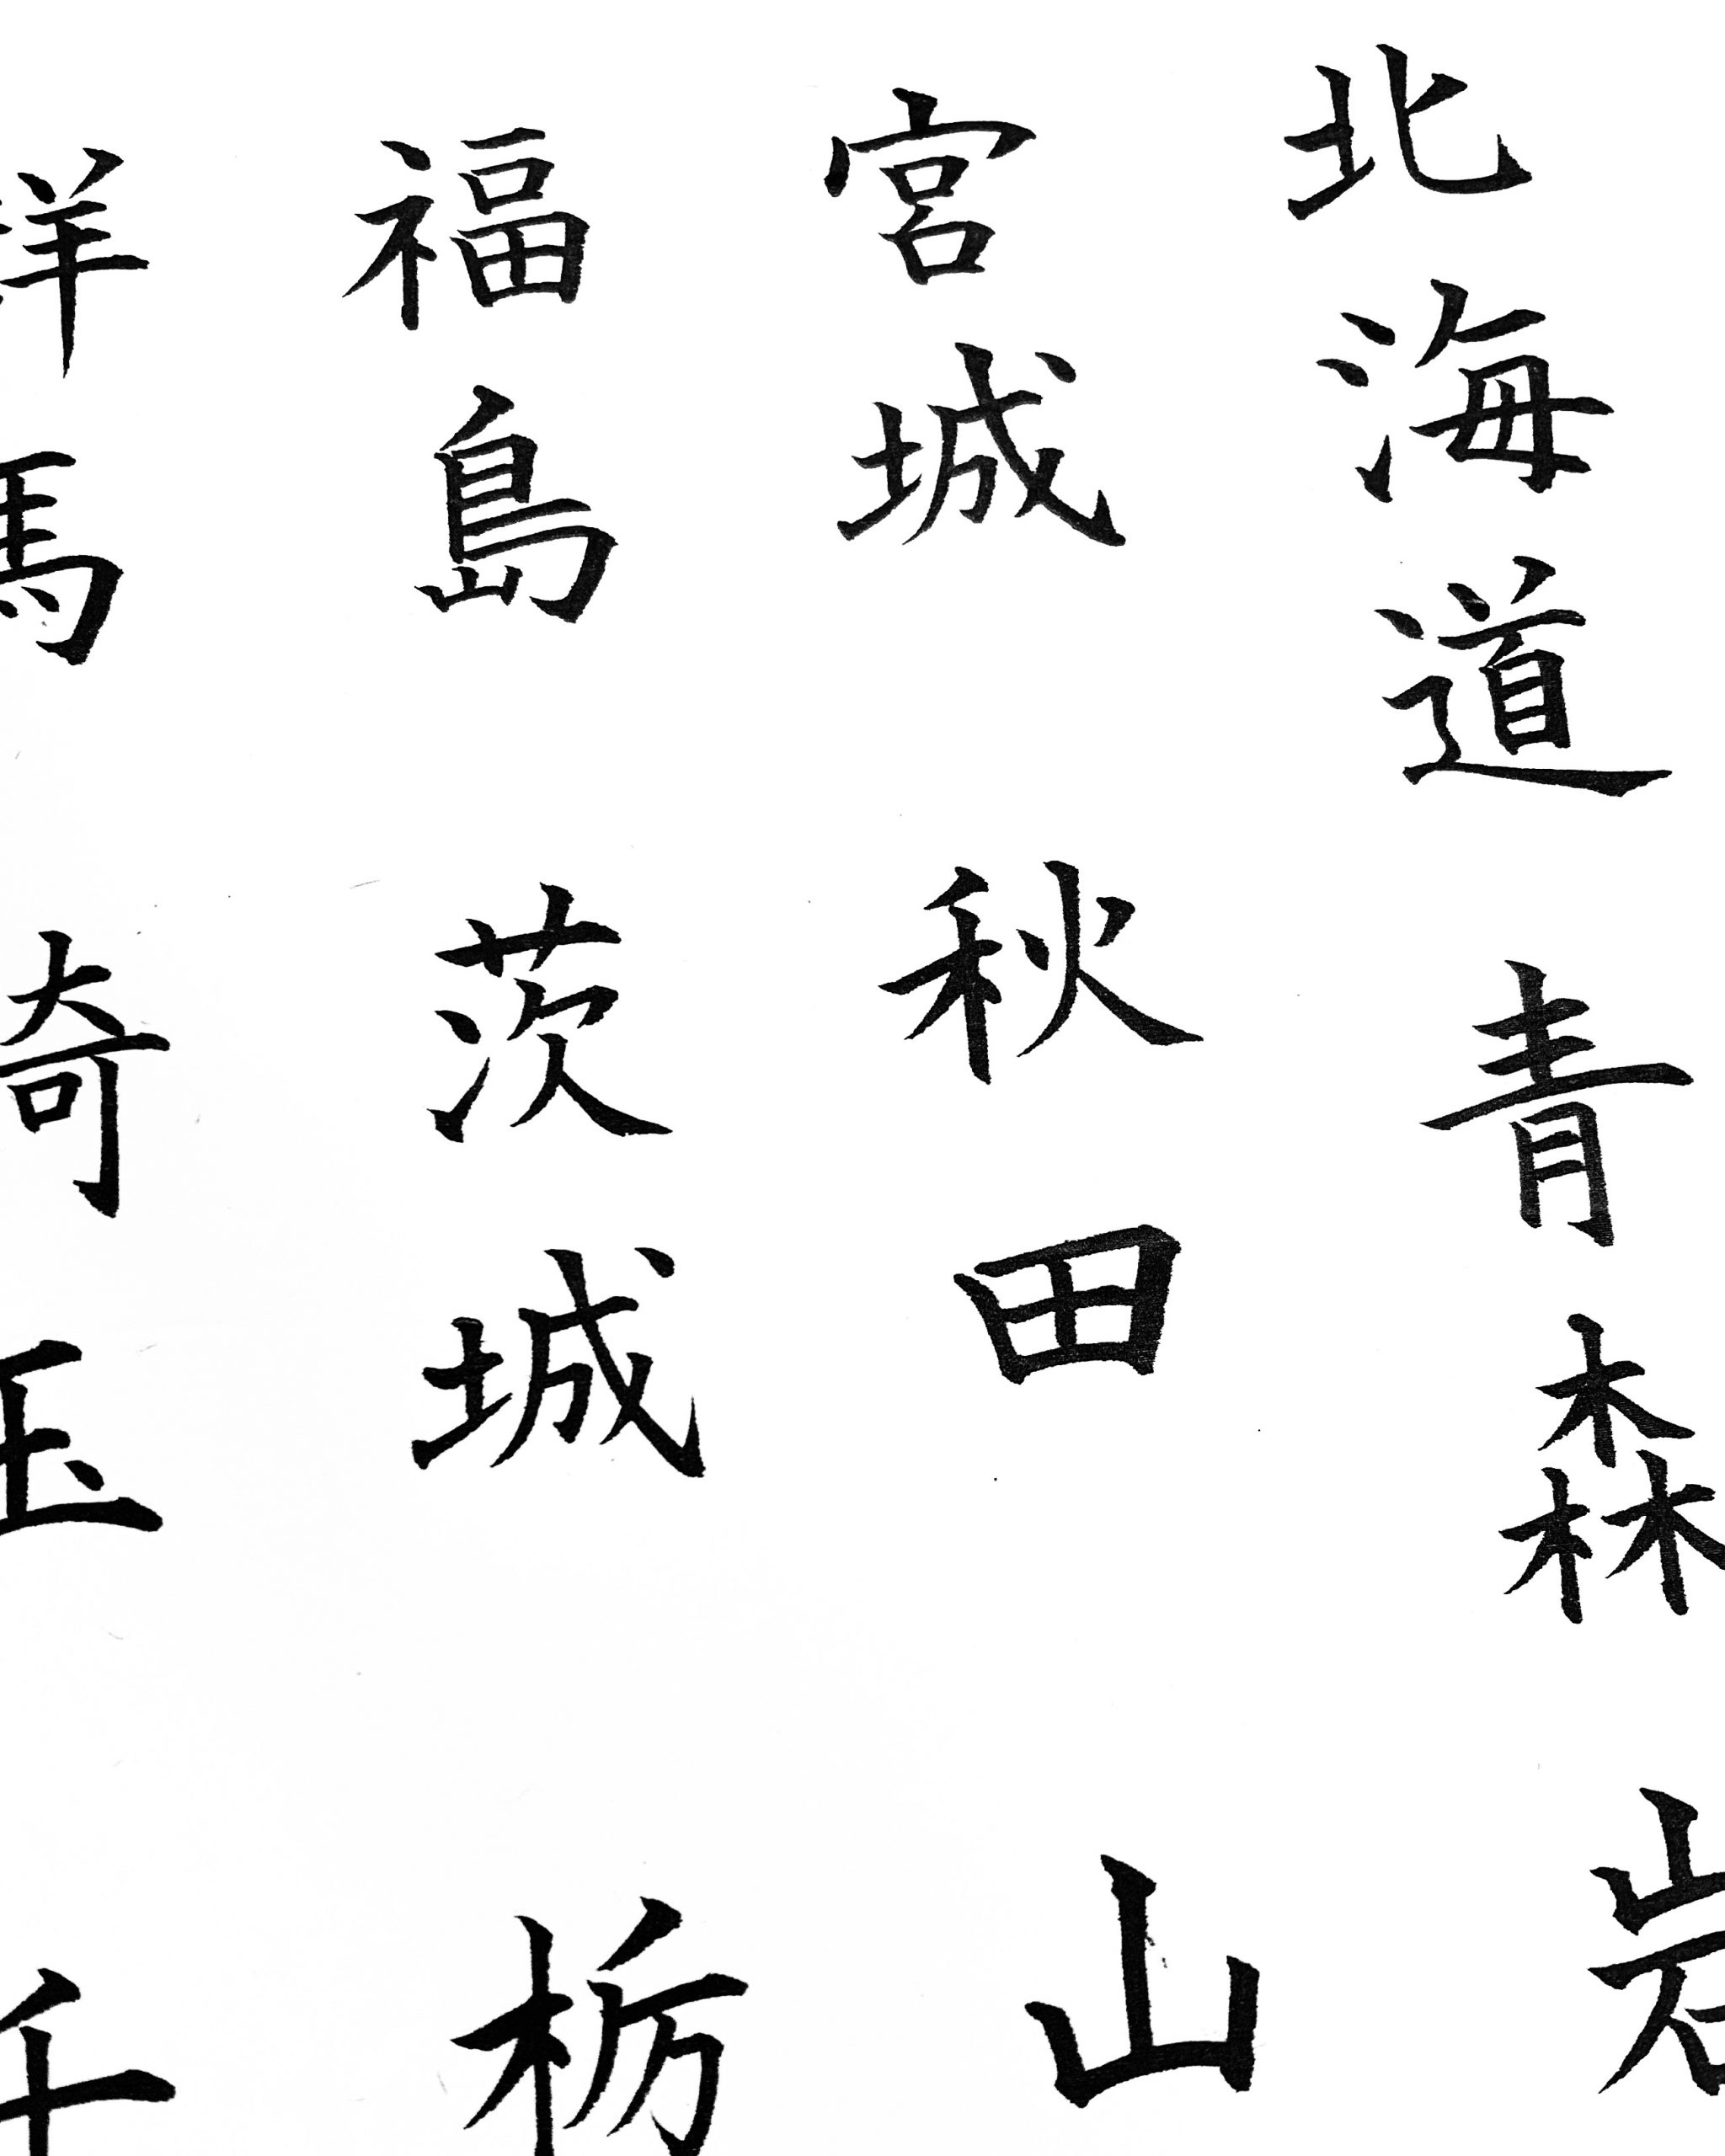 北海道 青森 岩
宮城 秋田 山
福島 茨城 栃
馬 埼玉 千